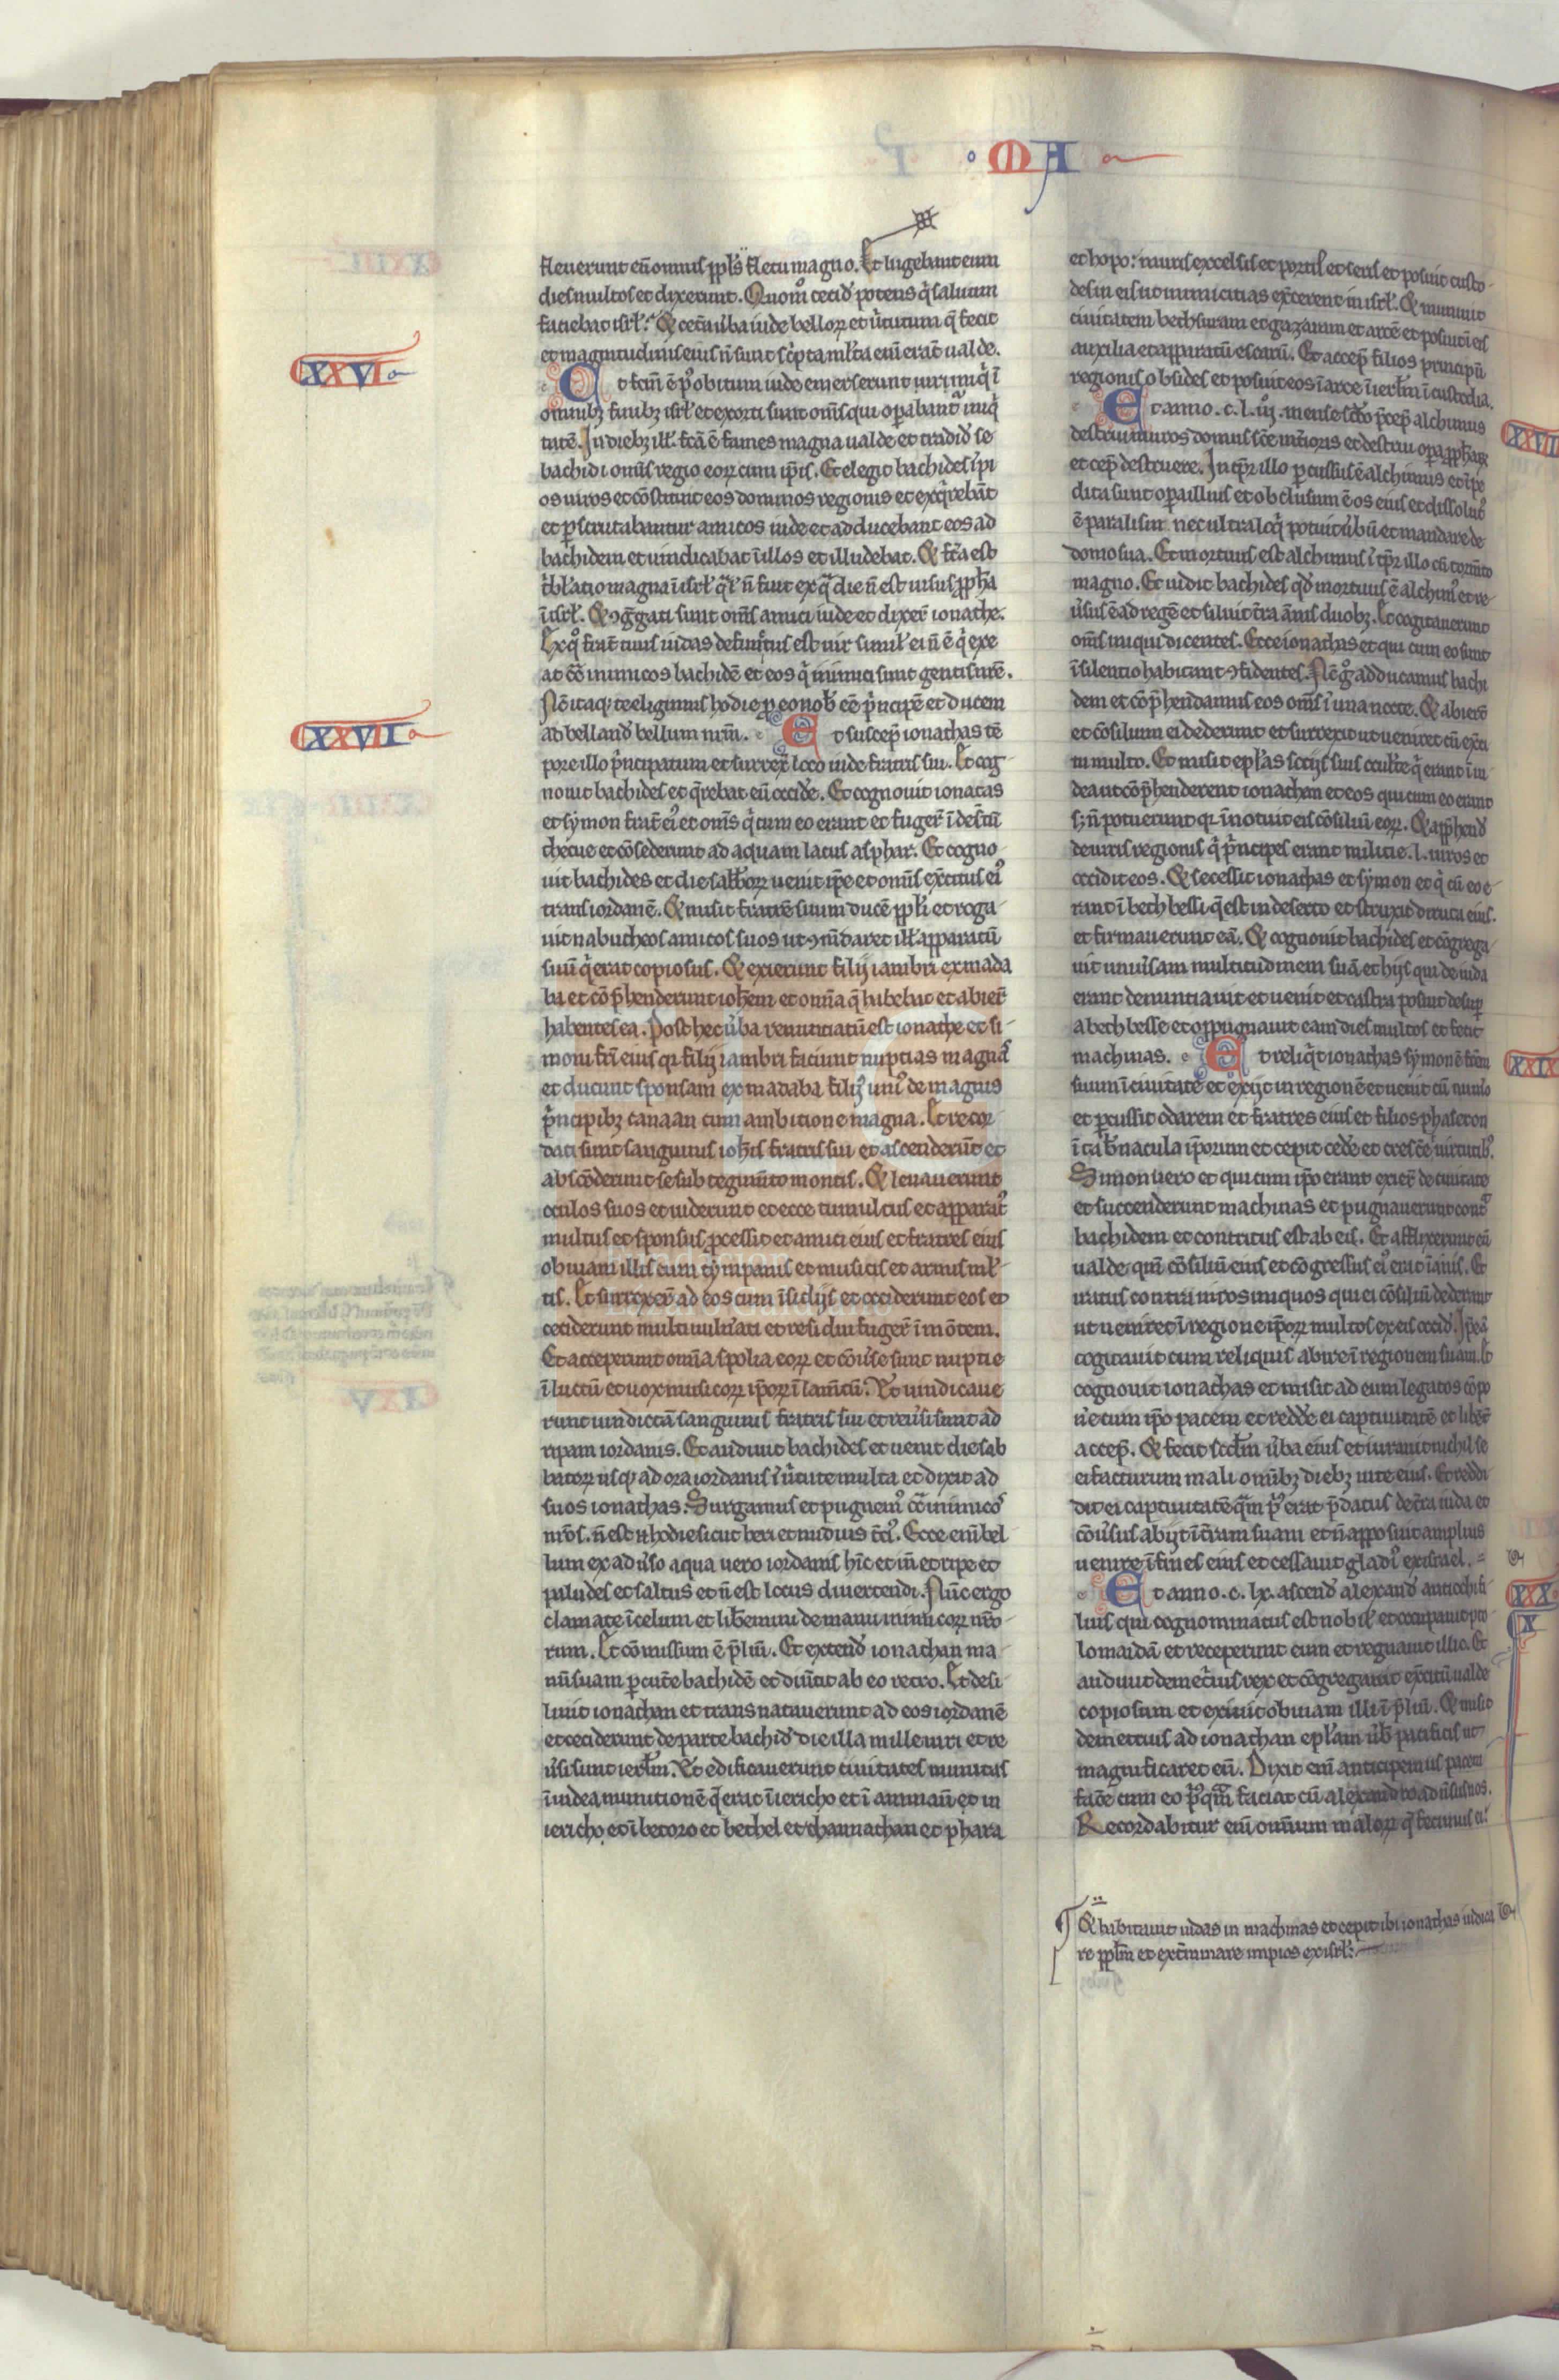 MA
fleuerunt eū omnis ppl's fletu magno. Et lugebant eum
dies multos et dixerunt. Quom̊ cecid' potens q̇ saluum
faciebat isrł. Et cet̄a ủba iude belloꝝ et ủtutum q̄ fecit
et magnitudinis eius ñ sunt sc̓pta mł'ta enī erāt ualde.
XXV
Et fcm̄ ē p' obitum iude emerserunt uiri iniq̇ ī
omnibꝫ finibꝫ isrł et exorti sunt om̄s qui opabantͬ iniq̇
tatē. In diebꝫ ill' fc̄a ē fames magna ualde et tradid' se
bachidi omīs regio eoꝝ cum ip̄is. Et elegit bachides īpi
os uiros et cōstituit eos dominos regionis et exq̇rebāt
et pscrutabantur amicos iude et adducebant eos ad
bachidem et uindicabat ī illos et illudebat. Et fc̄a est
t̓bl'atio magna ī isrł q̄l' ñ fuit ex q̄ die ñ est uisus ppha
ī isrł. Et ꝯg̓gati sunt om̄s amici iude et dixer̄ ionathe.
Ex q̊ frat̄ tuus iudas defunctus est uir simil' ei ñ ē q̇ exe
at cō inimicos bachidē et eos q̇ inimici sunt gentis nr̄e.
Nc̄ itaqꝫ te eligimus hodie p eo nob' eē p̓ncipē et ducem
ad belland' bellum nrm̄. Et suscep̄ ionathas tē
XXVI
pore illo p̓ncipatum et surrex̄ loco iude fratris sui. Et cog
nouit bachides et q̄rebat eū occid̓e. Et cognouit ionatas
et symon frat̄ ei' et om̄s q̇ cum eo erant et fuger̄ ī des̄tū
thecue et cōsederunt ad aquam lacus asphar. Et cogno
uit bachides et die sabb'oꝝ uenit ip̄e et omīs ex̄citus ei'
trans iordanē. Et misit fratrē suum ducē ppl'i et roga
uit nabutheos amicos suos ut ꝯm̄daret ill' apparatū
suū q̇ erat copiosus. Et exierunt filij iambri ex mada
ba et cōp̓henderunt ioh'em et omīa q̄ habebat et abier̄
habentes ea. Post hec ủba renuntiatū est ionathe et si
moni fr̄i eius qꝛ filij iambri faciunt nuptias magnas
et ducunt sponsam ex madaba filiā uni' de magnis
p̓ncipibꝫ canaan cum ambitione magna. Et recor
dati sunt sanguinis ioh'is fratris sui et ascenderūt et
abscōderunt se sub tegumto montis. Et leuauerunt
oculos suos et uiderunt et ecce tumultus et apparat'
multus et sponsus pcessit et amici eius et fratres eius
obuiam illis cum tympanis et musicis et armis ml'
tis. Et surrexer̄ ad eos cum īsidijs et occiderunt eos et
ceciderunt multi uulnati et residui fuger̄ ī mōtem.
Et acceperunt omīa spolia eoꝝ et cōủse sunt nuptie
ī luctū et uox musicoꝝ ip̄oꝝ ī lam̄tū. Et uindicaue
runt uindictā sanguinis fratris sui et reủsi sunt ad
ripam iordanis. Et audiuit bachides et uenit die sab
batoꝝ usqꝫ ad ora iordanis ī ủtute multa et dixit ad
suos ionathas. Surgamus et pugnem' cͣ inimicos
nr̄os. ñ est n̄ hodie sicut heri et nudius t̄ci'. Ecce enī bel
lum ex aduủso aqua uero iordanis hīc et īn et ripe et
paludes et saltus et ñ est locus diuertendi. Nūc ergo
clamate ī celum et lib'emini de manu inimicoꝝ nr̄o
rum. Et cōmissum ē p̄lium. Et extend' ionathan ma
nū suam pcut̄e bachidē et diủtit ab eo retro. Et desi
liuit ionathan et transnatauerunt ad eos iordanē
et ceciderunt de parte bachid' die illa mille uiri et re
ủsi sunt ierłm. Et edificauerunt ciuitates munitas
ī iudea munitionē q̄ erat ī iericho et ī ammaū et in
iericho et ī betoro et bethel et thamnathan et phara
et thopo: muris excelsis et portis et seris et posuit custo
des in eis ut inimicitias ex̄cerent in isrł. Et muniuit
ciuitatem bethsuram et gazaram et arcē et posuit ī eis
auxilia et apparatū escarū. Et accep̄ filios principū
regionis obsides et posuit eos ī arce ī ierłm ī custodia.
Et anno .c.l.iij. mense scd̊o p̄cep̄ alchimus
XXVII
destrui muros domus sc̄e int̓ioris et destrui opa pphaꝝ
et cep̄ destruere. In tp̄r illo pcussus ē alchimus et īpe
dita sunt opa illius et obclusum ē os eius et dissolut'
ē paralisin. nec ultra loq̇ potuit ủbū et mandare de
domo sua. Et mortuus est alchimus ī tp̄r illo cū torm̄to
magno. Et uidit bachides qd' mortuus ē alchim' et re
ủsus ē ad regē et siluit t̄ra ānis duobꝫ. Et cogitauerunt
om̄s iniqui dicentes. Ecce ionathas et qui cum eo sunt
ī silentio habitant ꝯfidentes. Nc̄ g̊ adducamus bachi
dem et cōp̓hendamus eos om̄s ī una nocte. Et abierū
et cōsilium ei dederunt et surrexit ut ueniret cū ex̄ci
tu multo. Et misit epl'as socijs suis occulte q̇ erant ī iu
dea ut cōp̓henderent ionathan et eos qui cum eo erant
sꝫ ñ potuerunt qꝛ īnotuit eis cōsiliū eoꝝ. Et app̓hend'
de uiris regionis q̇ p̓ncipes erant milicie .l. uiros et
occidit eos. Et secessit ionathas et symon et q̇ cū eo e
rant ī bethbessi q̄ est in deserto et struxit diruta eius.
et firmauerunt eā. Et cognouit bachides et cōgrega
uit uniủsam multitudinem suā et hijs qui de iuda
erant denuntiauit et uenit et castra posuit desup
a bethbesse et oppugnauit eam dies multos et fecit
machinas. Et reliq̇t ionathas symonē fr̄em
XXIX
suum ī ciuitate et exijt in regionē et uenit cū num̓o
et pcussit odarem et fratres eius et filios phaseron
ī tab'nacula ip̄orum et cepit ced̓e et cresc̓e ī uirtutibꝫ.
Simon uero et qui cum ip̄o erant exier̄ de ciuitate
et succenderunt machinas et pugnauerunt contͣ
bachidem et contritus est ab eis. Et afflixerunt eū
ualde qm̄ cōsiliū eius et cōgressus ei' erat īanis. Et
iratus contra uiros iniquos qui ei cōsiliū dederant
ut ueniret ī regione ip̄oꝝ multos ex eis occid'. Ip̄e ā
cogitauit cum reliquis abire ī regionem suam. Et
cognouit ionathas et misit ad eum legatos cōpo
n̓e cum ip̄o pacem et redd̓e ei captiuitatē et libēt̄
accep̄. Et fecit scd'm ủba eius et iurauit nichil se
ei facturum mali omībꝫ diebꝫ uite eius. Et reddi
dit ei captiuitatē q̄m p' erat p̄datus de t̄ra iuda et
cōủsus abijt ī t̄ram suam et ñ apposuit amplius
uenire ī fines eius et cessauit gladi' ex israel.
Et anno .c.lx. ascend' alexand' antiochi fi
XXX
X
lius qui cognominatus est nobil' et occupauit pto
lomaidā et receperunt eum et regnauit illic. Et
audiuit demetrius rex et cōgregauit ex̄citū ualde
copiosum et exiuit obuiam illi ī p̄liū. Et misit
demetrius ad ionathan epl'am ủb' pacificis ut
magnificaret eū. Dixit enī anticipemus pacem
fac̄e cum eo p'qͣm faciat cū alexandro aduủsus nos.
Recordabitur enī omnium maloꝝ q̄ fecimus ei.
Et habitauit iudas in machinas et cepit ibi ionathas iudica
re ppl'm et ext̄minare impios ex isrł: